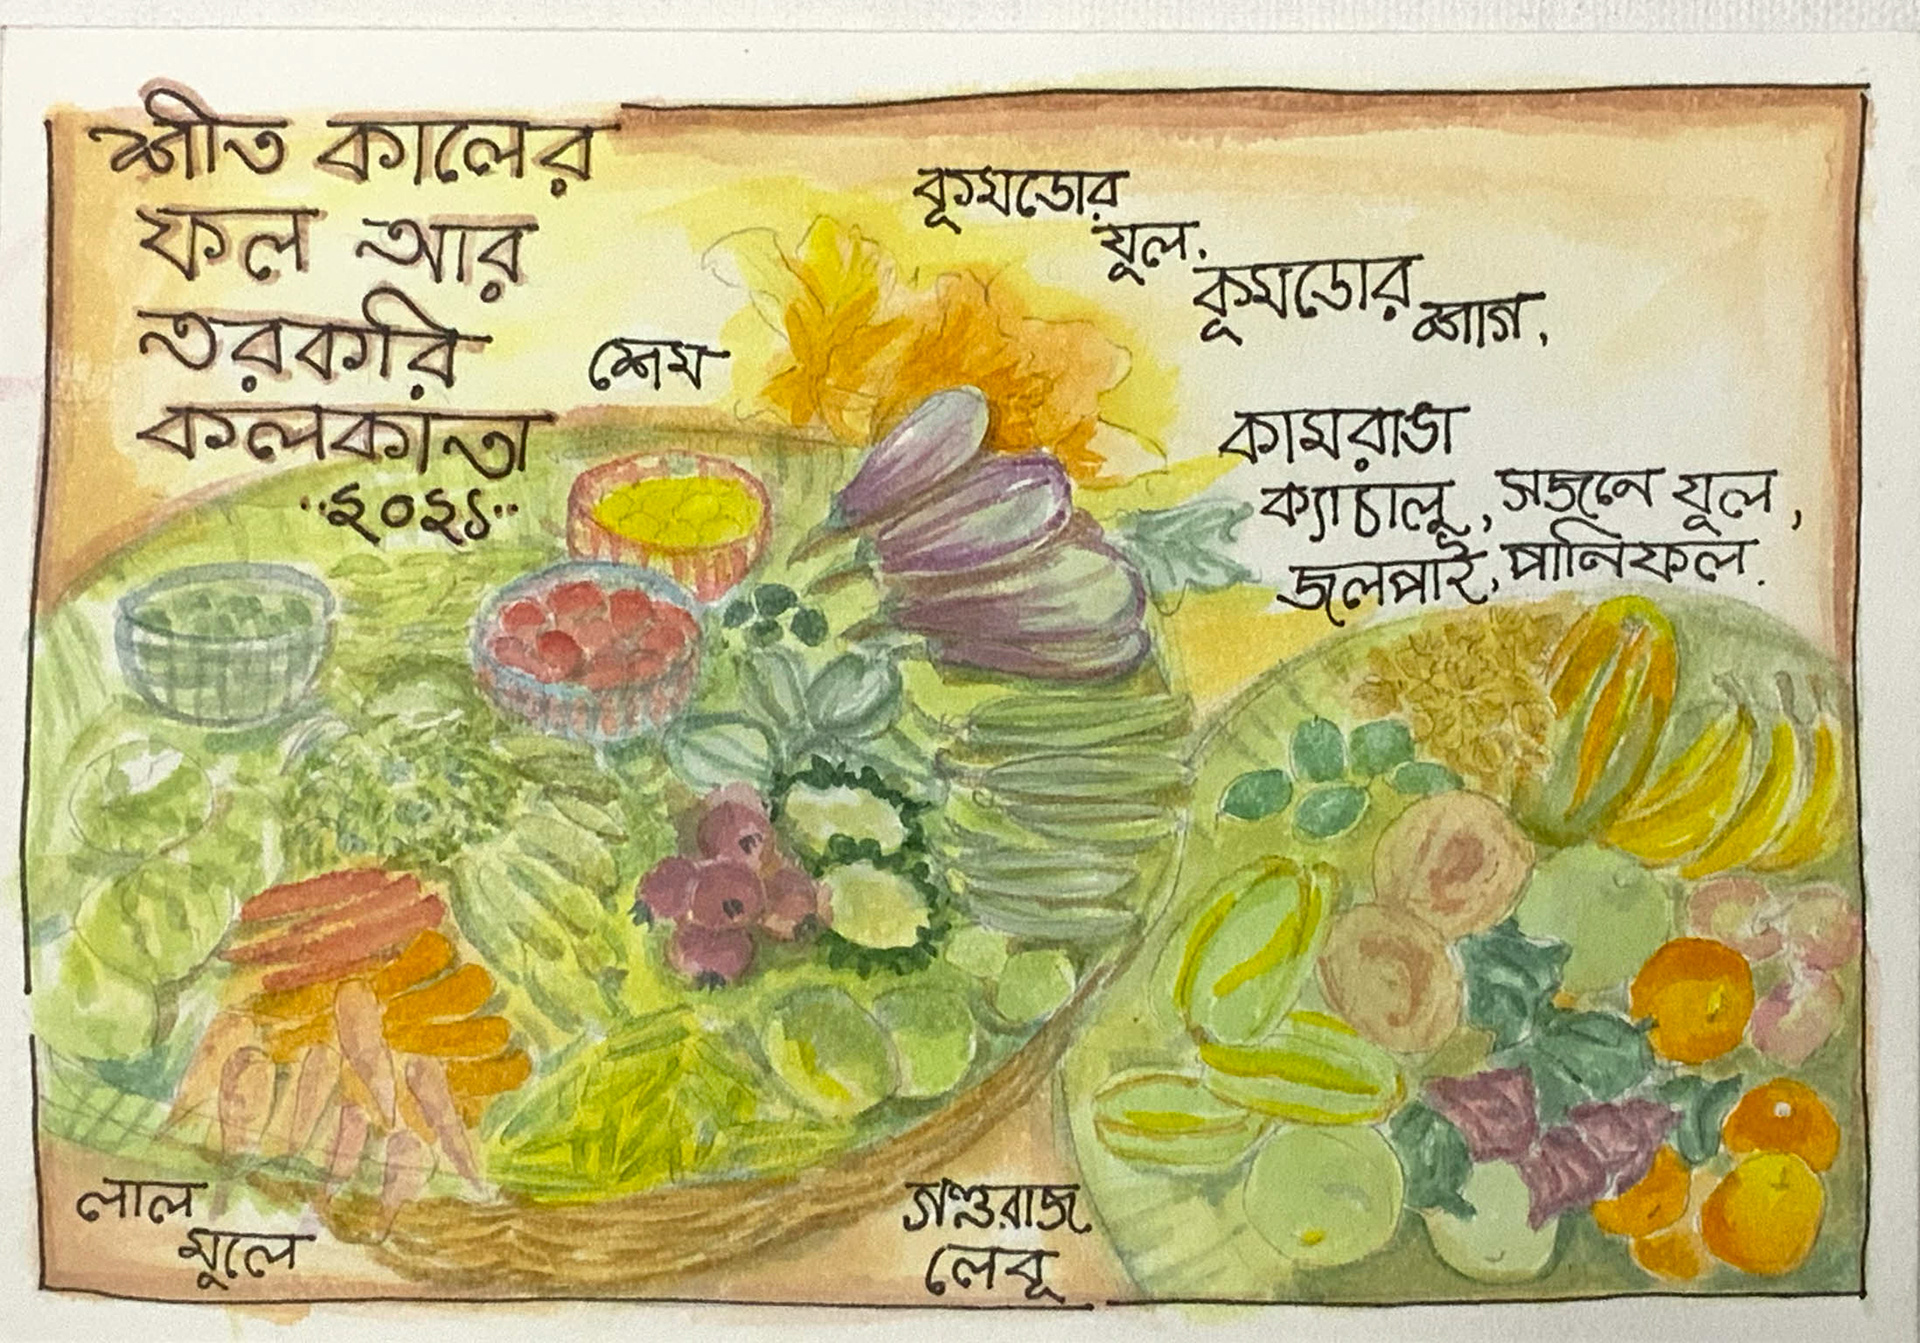 শীত কালের
ফল আর
তরকারি
কলকাতা
..২০২১..
শেম
কূমডোর
যূল.
কূমডোর শাগ.
কামরাঙা
ক্যাচালু, সজনে যূল,
জলপাই, পানিফল.
লাল
মূলে
গণ্ডরাজ
লেবূ